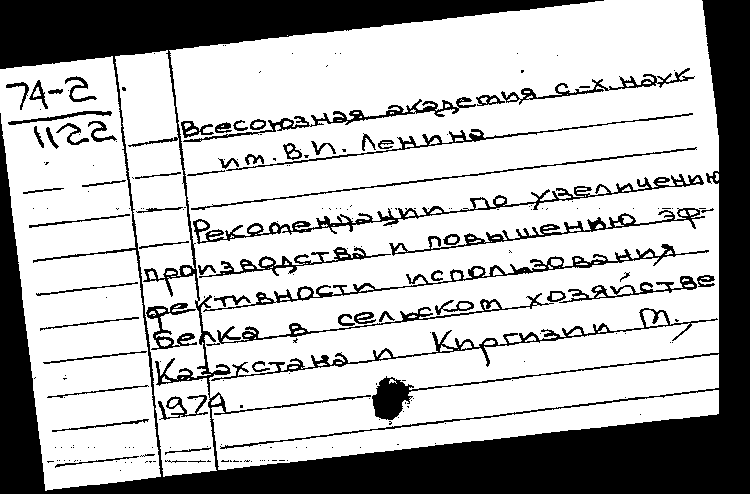 74-2
1122
Всесоюзная академия с.-х. наук
им. В.И. Ленина
Рекомендации по увеличению
производства и повышению эф-
фективности использования
белка в сельском хозяйстве
Казахстана и Киргизии М.,
1974.